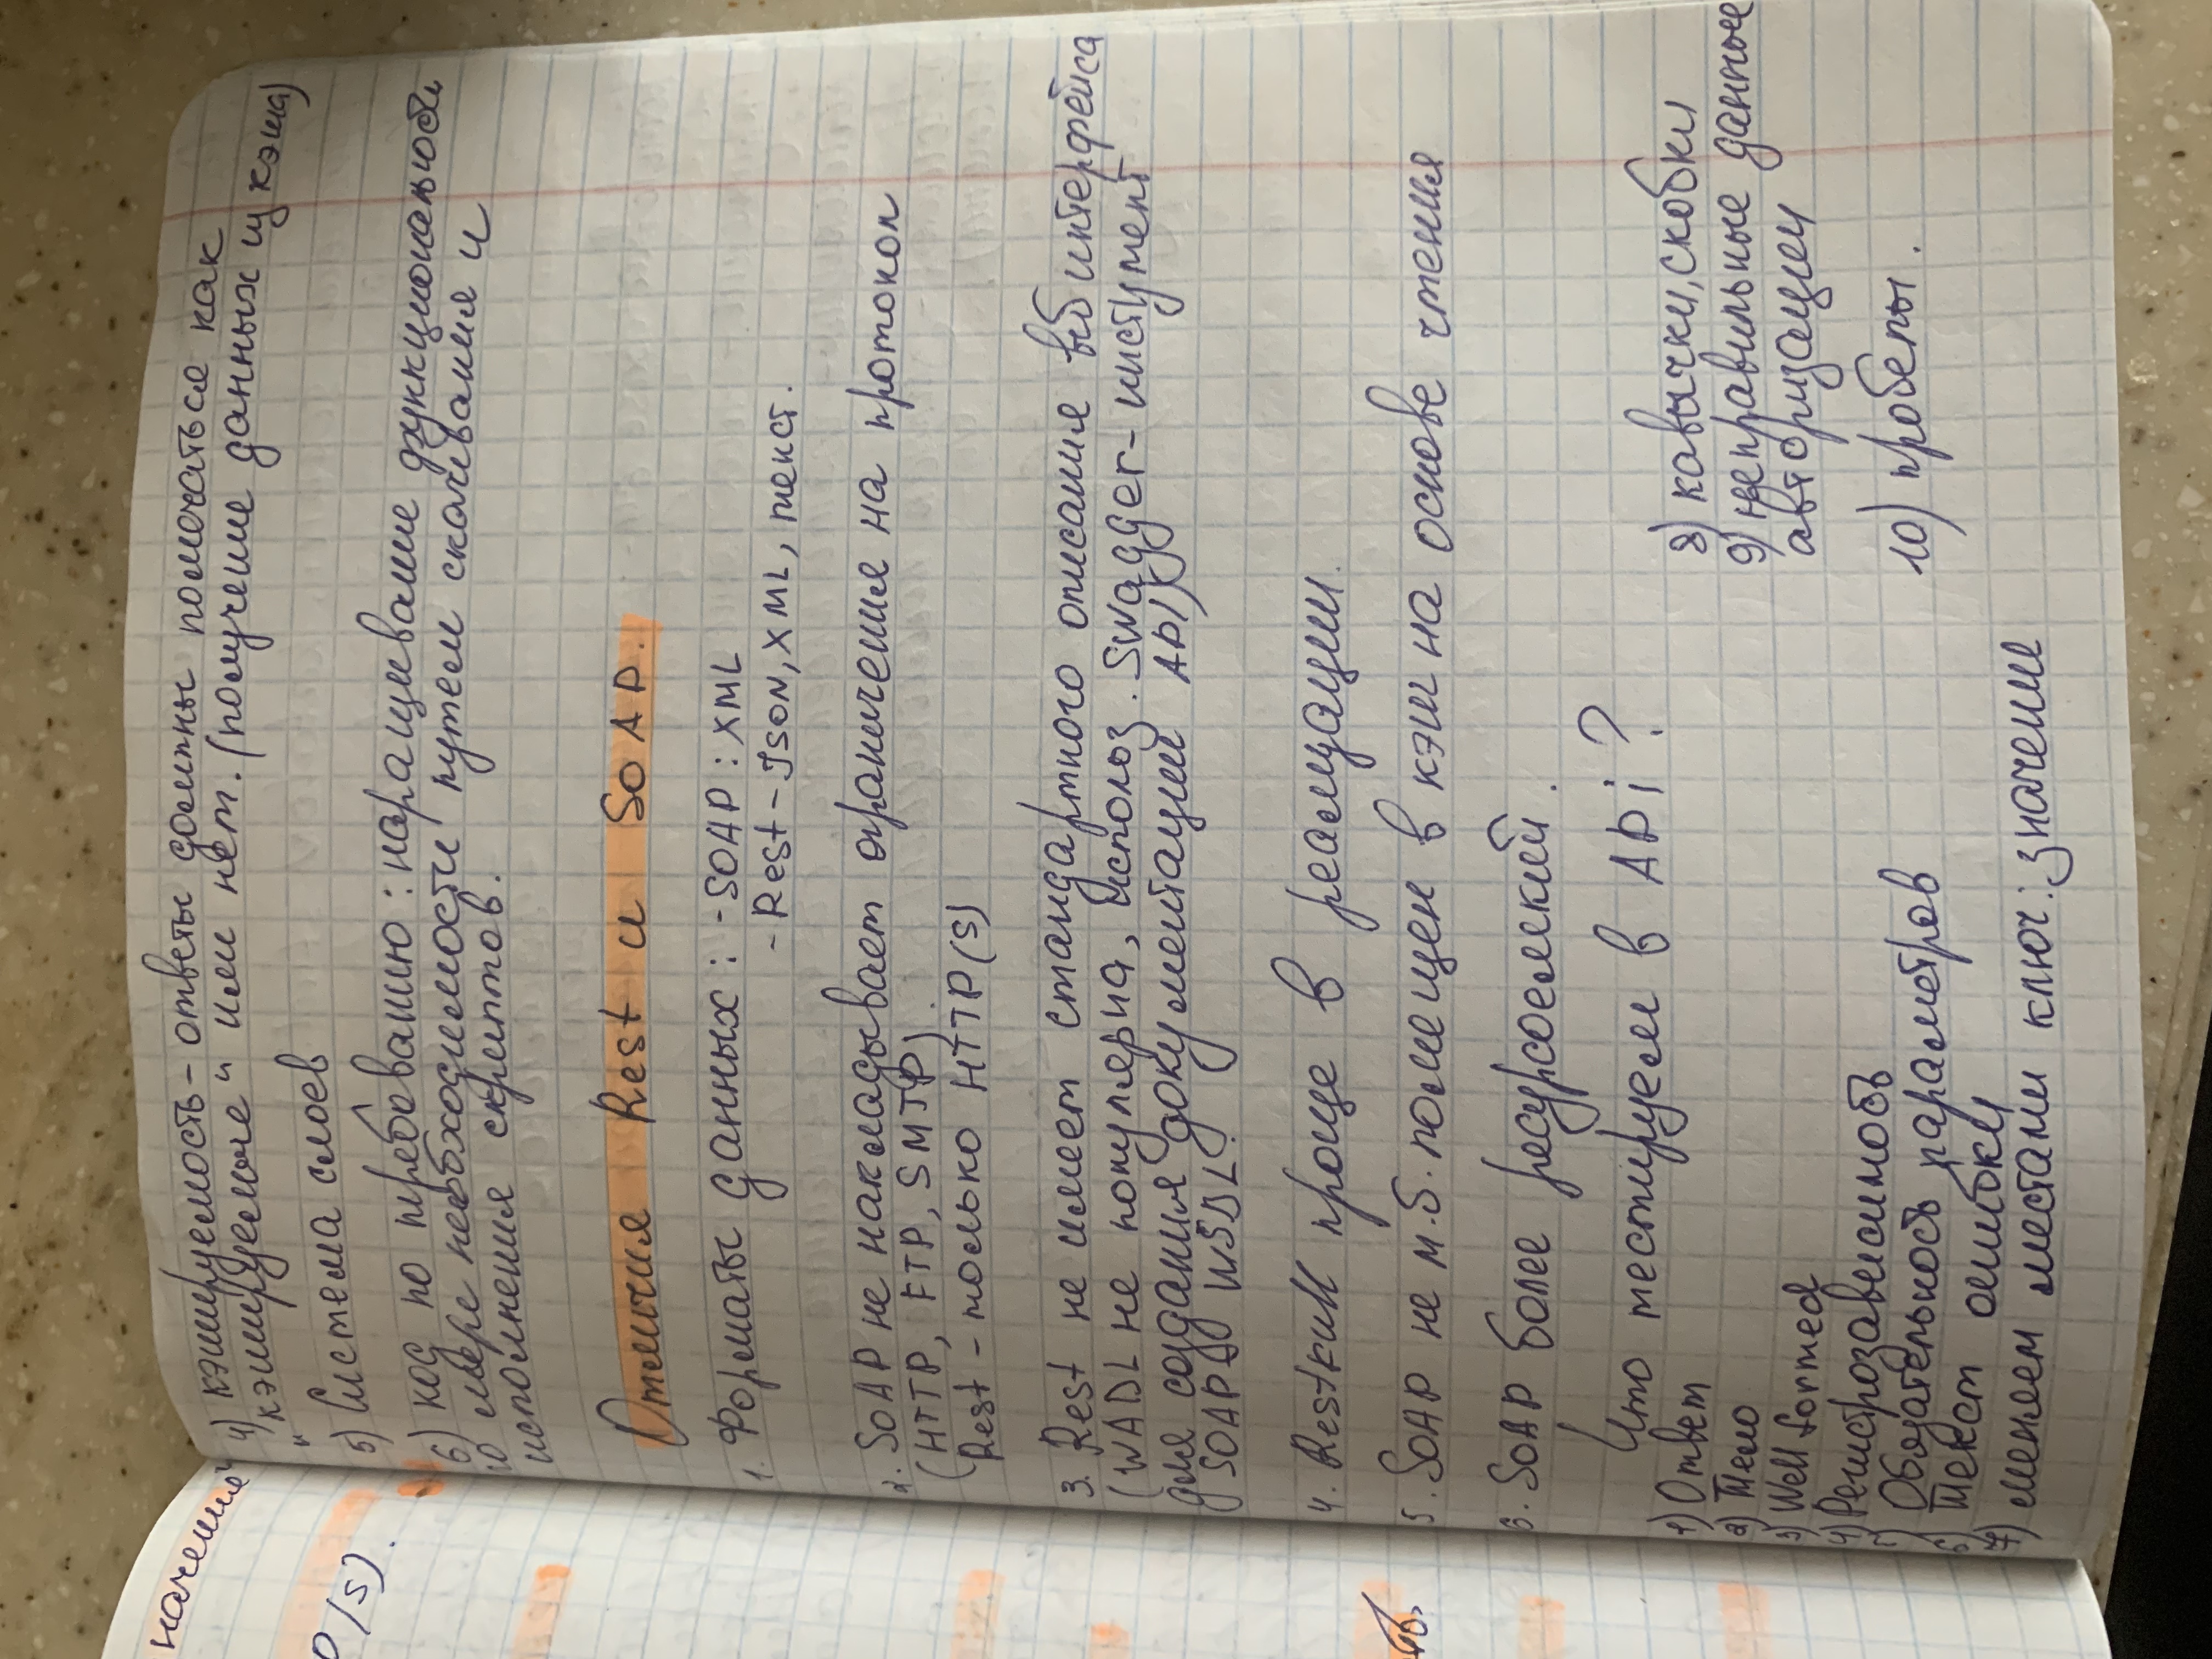 начения"
O(s).
4) кэшируемость - ответы должны помечаться как
"кэшируемые" или нет. (получение данных из кэша)
5) Система слоев
6) код по требованию: наращивание функциональности
по мере необходимости путем скачивания и
исполнения скриптов.
Отличия Rest и SOAP.
1. Форматы данных: - SOAP: XML
- Rest - JSON, XML, текст.
2. SOAP не накладывает ограничения на протокол
(HTTP, FTP, SMTP).
Rest - только HTTP(s)
3. Rest не имеет стандартного описания веб интерфейса
(WADL не популярна, использ. Swagger - инстумент
для создания документации API)
SOAP - WSDL.
4. Restкий проще в реализации.
5. SOAP не м.б. помещен в кэш на основе чтения
6. SOAP более ресурсоемкий.
Что тестируем в APi?
1) Ответ
2) Тело
3) Well formed
4) Регистрозависимость
) Обязательность параметров
6) Текст ошибки
7) меняем местами ключ: значение
8) кавычки, скобки
9) неправильные данные
авторизации
10) пробелы.